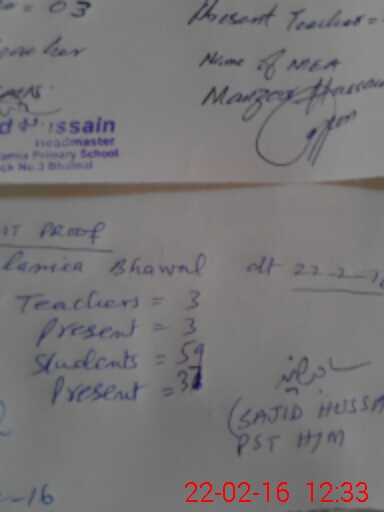 = 03
Present Teacher =
Teacher
Name of MEA
Manzoor Hussain
d Hussain
Headmaster
amia Primary School
ck No.3 Bhalwal
IT PROOF
lamia Bhawal dt 22-2-16
Teachers = 3
Present = 3
Students = 59
Present = 37
(SAJID HUSSA
PST H/M
-16
22-02-16 12:33